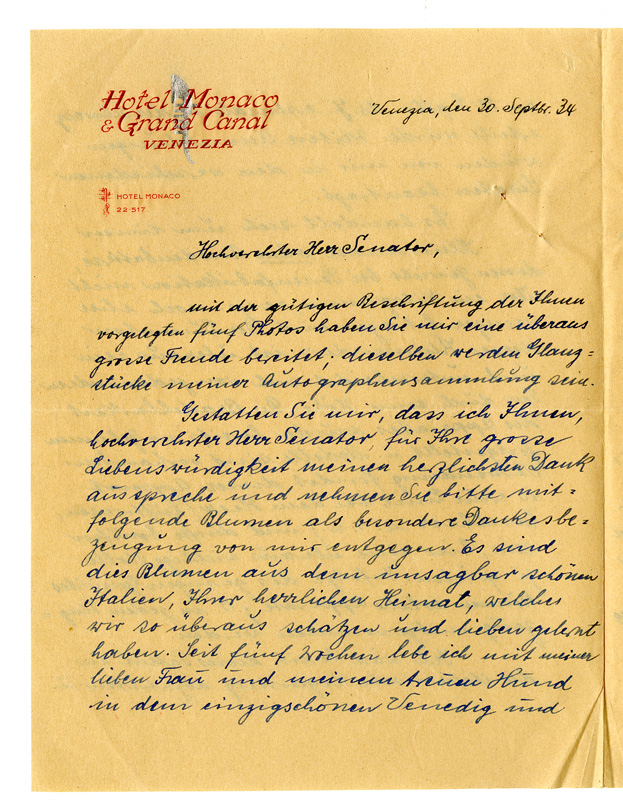 Hotel Monaco
& Grand Canal
VENEZIA
HOTEL MONACO
22-517
Venezia, den 30. Septbr. 34
Hochverehrter Herr Senator,
mit der gütigen Beschriftung der Ihnen
vorgelegten fünf Photos haben Sie mir eine überaus
grosse Freude bereitet; dieselben werden Glanz=
stücke meiner Autographensammlung sein.
Gestatten Sie mir, dass ich Ihnen,
hochverehrter Herr Senator, für Ihre grosse
Liebenswürdigkeit meinen herzlichsten Dank
ausspreche und nehmen Sie bitte mit=
folgende Blumen als besondere Dankesbe=
zeugung von mir entgegen. Es sind
dies Blumen aus dem unsagbar schönen
Italien, Ihrer herrlichen Heimat, welches
wir so überaus schätzen und lieben gelernt
haben. Seit fünf Wochen lebe ich mit meiner
lieben Frau und meinem treuen Hund
in dem einzigschönen Venedig und